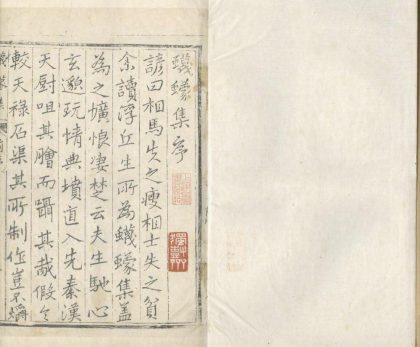 蠛蠓集序
諺曰相馬失之瘦相士失之貧
余讀浮丘生所為蠛蠓集蓋
為之壙悢淒楚云夫生馳心
玄邈玩情典墳直入先秦漢
天廚咀其膾而躡其哉假令
較天祿石渠其所制作豈不